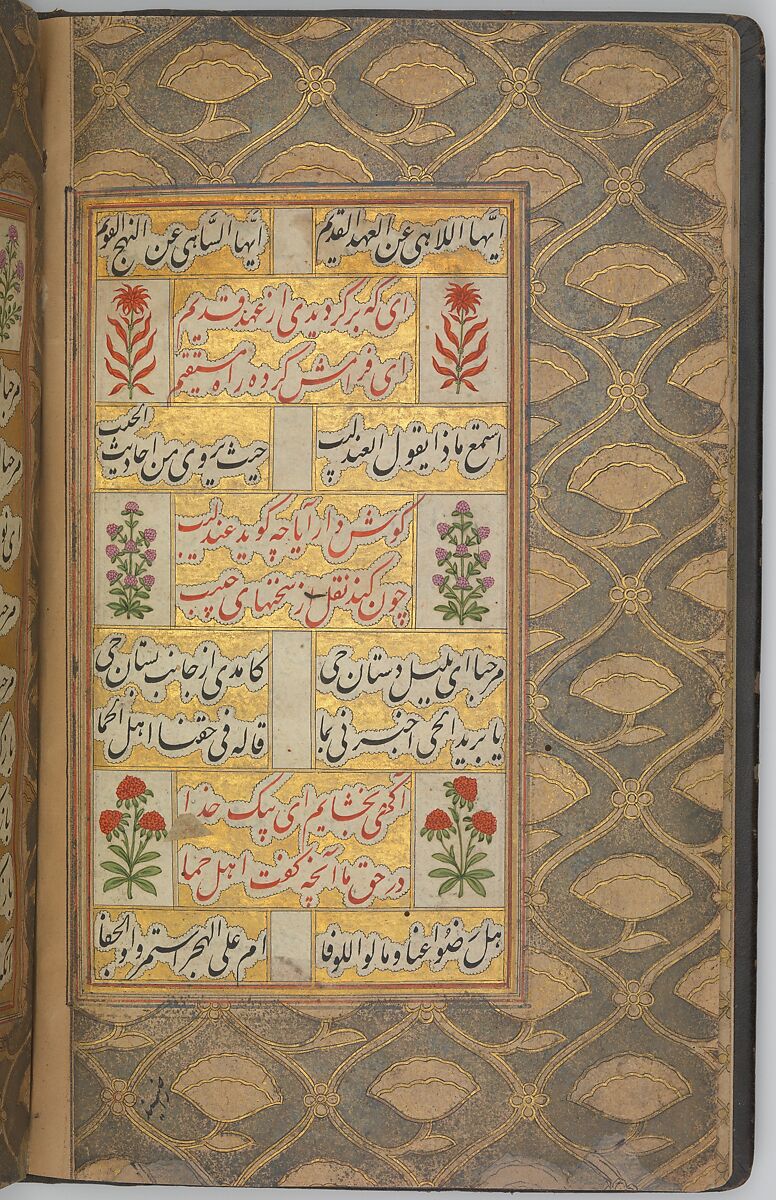 ایّها اللاهی عن العهد القدیم ایّها السّاهی عن النهج القویم
ای که برگردیدی از عهد قدیم
ای فرامش کرده راه مستقیم
استمع ماذا یقول العندلیب حیث یروی من احادیث الحبیب
کوش دار آیا چه کوید عندلیب
چون کند نقل از سخنهای حبیب
مرحبا ای بلبل دستان حی کامدی از جانب بستان حی
یا برید الحی اخبرنی بما قاله فی حقنا اهل الحما
آکهی بخشایم ای پیک خدا
در حق ما آنچه کفت اهل حما
هل رضوا عنا و مالوا للوفا ام علی الهجر استمروا والجفا